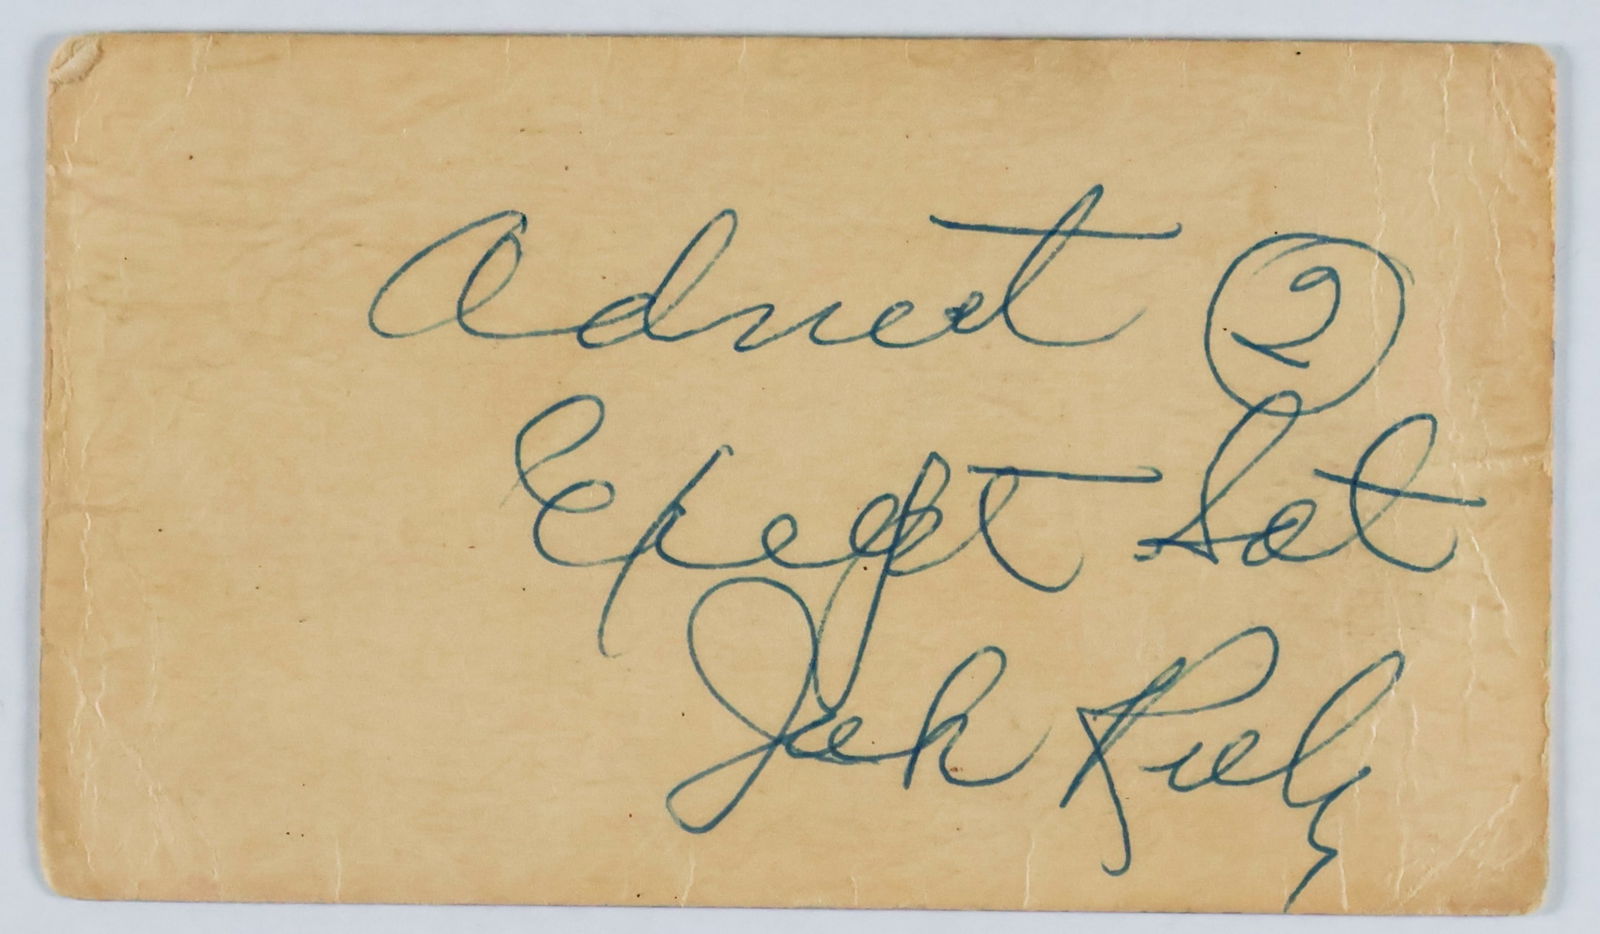 Admit 2
Except Sat
Jack Ruby